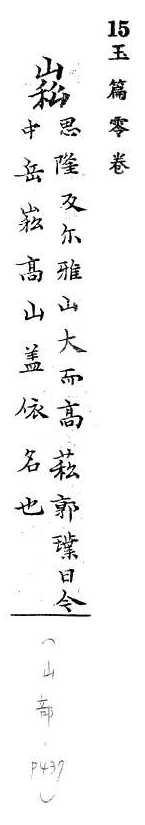 15玉篇零卷
崧
思隆反尔雅山大而高崧郭璞曰今
中岳崧高山盖依名也
(山部.P437)